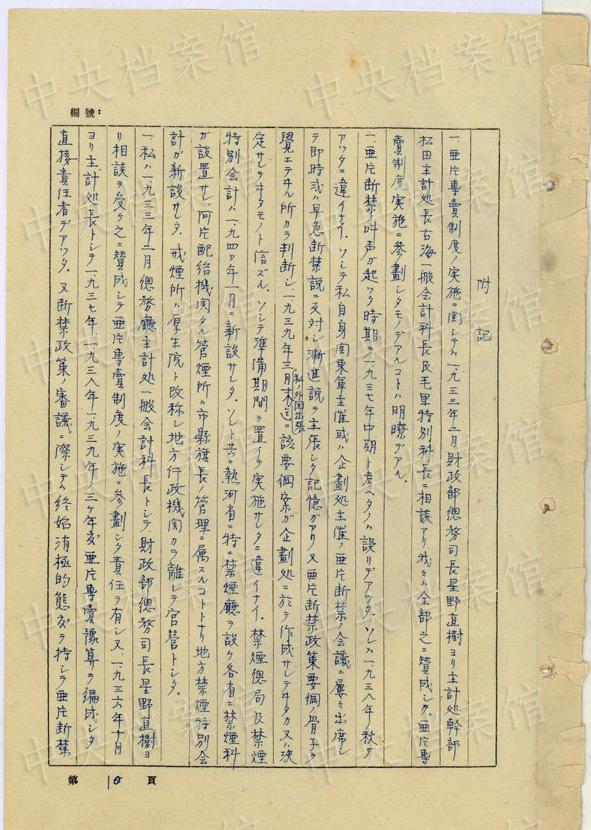 中央档案馆
編號：
附記
一、亜片専賣制度ノ実施ニ関シテハ一九三三年二月財政部總務司長星野直樹ヨリ主計処幹部
松田主計処長古海一般会計科長及毛里特別科長ニ相談アリ我々ハ全部之ニ賛成シタ。亜片専
賣制度実施ニ参劃シタモノデアルコトハ明瞭デアル。
一、亜片断禁ノ叫声ガ起ツタ時期ヲ一九三七年中期ト考ヘタノハ誤リデアツタ。ソレハ一九三八年ノ秋デ
アツタニ違イナイ。ソシテ私自身関東軍主催或ハ企劃処主催ノ亜片断禁ノ会議ニ屡々出席シ
テ即時或ハ早急断禁説ニ反対シ漸進説ヲ主張シタ記憶ガアリ又亜片断禁政策要綱ノ骨子ヲ
覺エテヰル所カラ判断シ一九三九年三月末私ノ外国出張迄ニ該要綱案ガ企劃処ニ於テ作成サレテヰタカ又ハ決
定サレテヰタモノト信ズル。ソシテ準備期間ヲ置イテ実施サレタニ違イナイ。禁煙總局及禁煙
特別会計ハ一九四〇年一月ニ新設サレタ。ソレト共ニ熱河省ニ特ニ禁煙廳ヲ設ケ各省ニ禁煙科
ガ設置サレ、阿片配給機関タル管煙所ハ市縣旗長ノ管理ニ属スルコトトナリ地方禁煙特別会
計ガ新設サレタ。戒煙所ハ厚生院ト改称シ地方行政機関カラ離レテ官営トシタ。
一、私ハ一九三三年二月總務廳主計処一般会計科長トシテ、財政部總務司長星野直樹ヨ
リ相談ヲ受ケ之ニ賛成シテ亜片専賣制度ノ実施ニ参劃シタ責任ヲ有シ又、一九三六年十月
ヨリ主計処長トシテ一九三七年、一九三八年、一九三九年ノ三ケ年度亜片専賣豫算ヲ編成シタ
直接責任者デアツタ。又断禁政策ノ審議ニ際シテハ終始消極的態度ヲ持シテ亜片断禁
第 10 頁